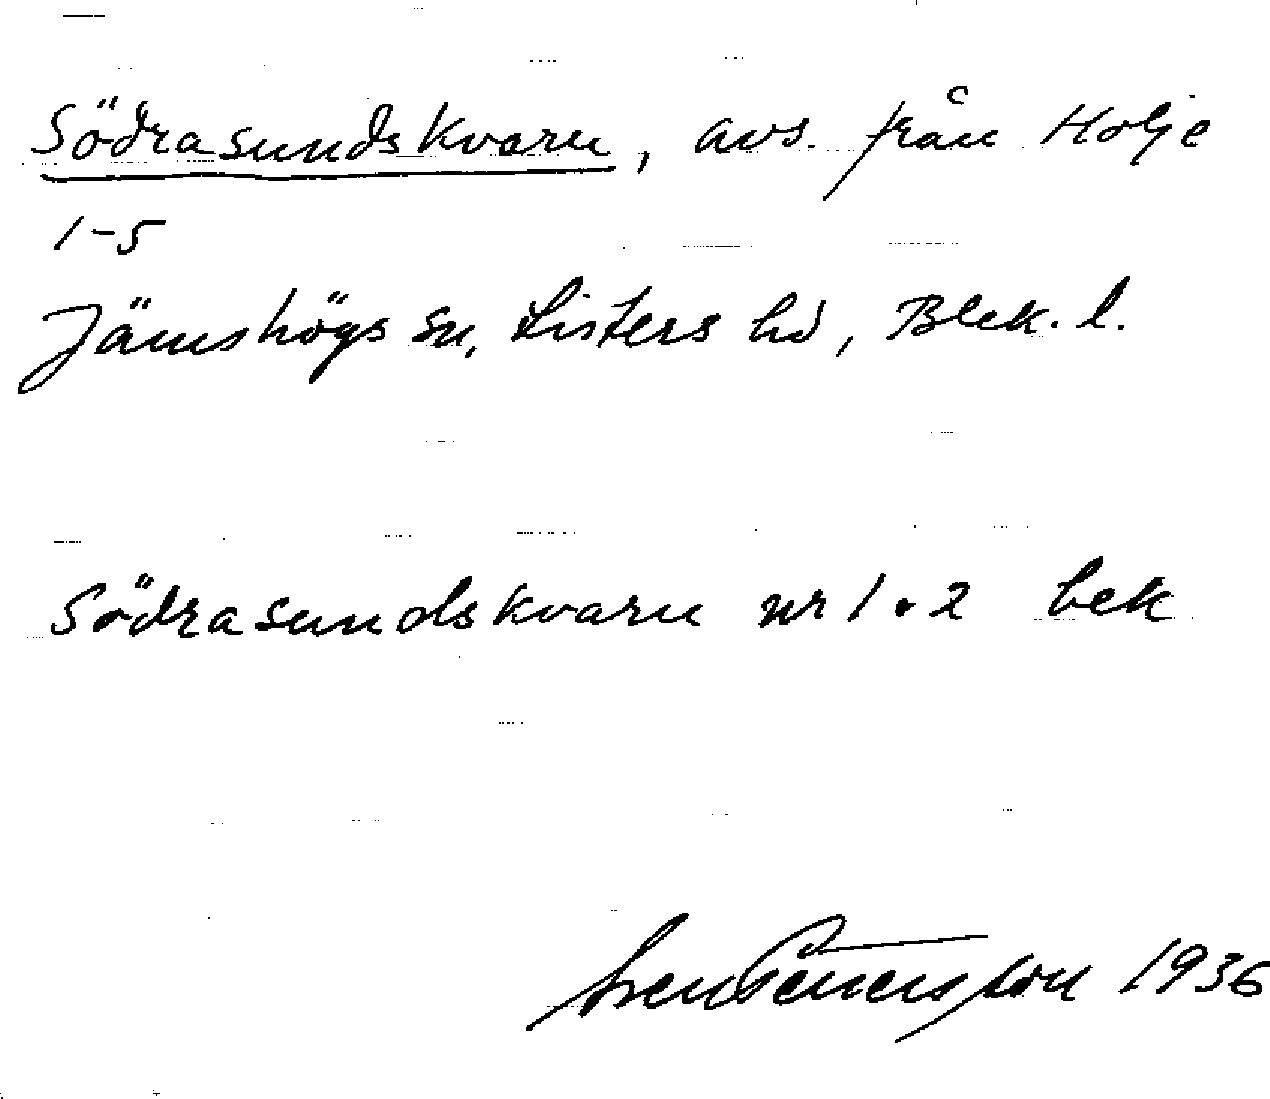 Södrasundskvarn, avs. från Holje
1-5
Jämshögs sn, Listers hd, Blek. l.
Södrasundskvarn nr 1 o 2 bek
Sven Benson 1936